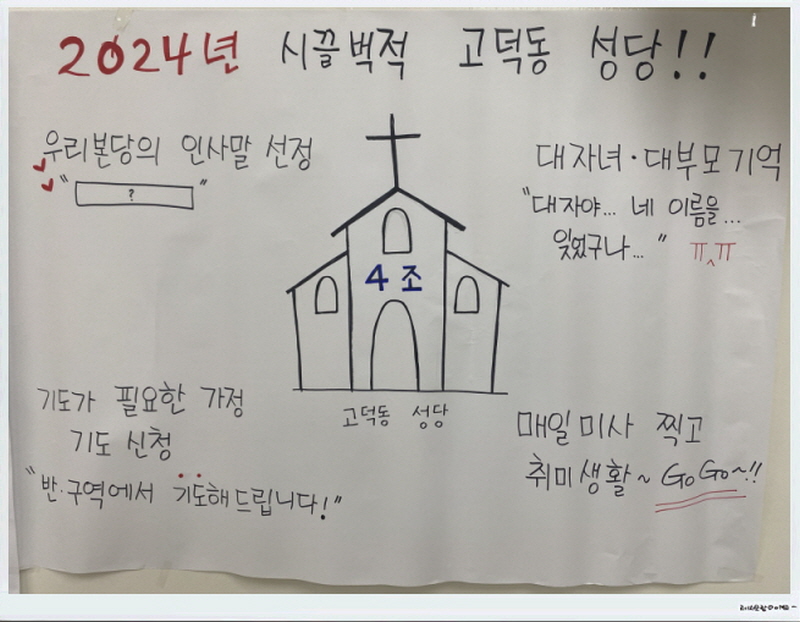 2024년 시끌벅적 고덕동 성당!!
우리본당의 인사말 선정
" ? "
대자녀·대부모 기억
"대자야... 네 이름을...
잊었구나..." ㅠㅠ
4조
고덕동 성당
기도가 필요한 가정
기도 신청
"반·구역에서 기도해드립니다!"
매일미사 찍고
취미생활~ GoGo~!!